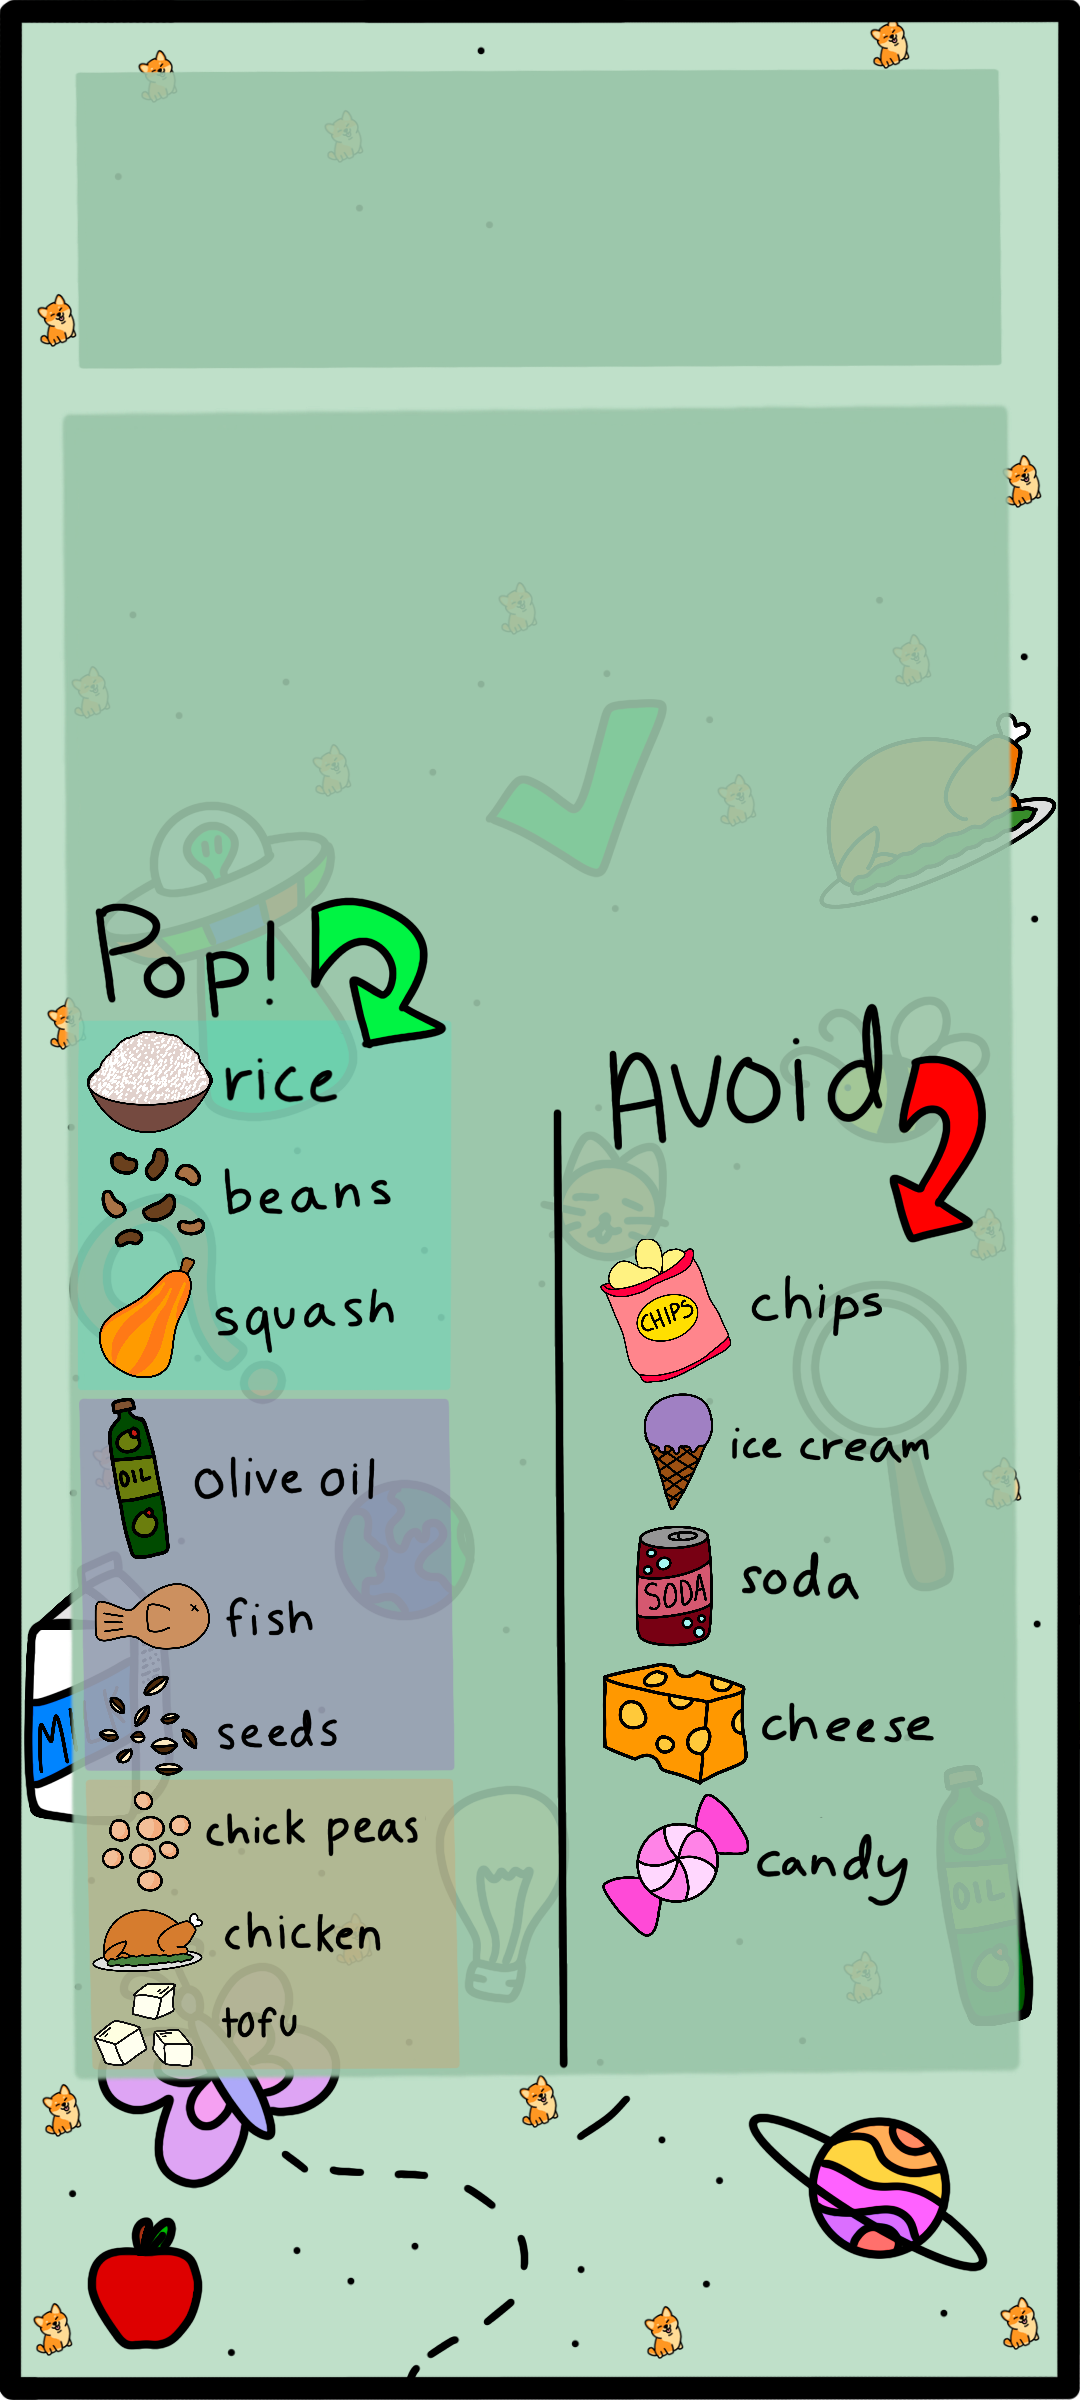 Pop!
rice
beans
squash
OIL
olive oil
fish
seeds
MILK
chick peas
chicken
tofu
Avoid
CHIPS
chips
ice cream
SODA
soda
cheese
candy
OIL